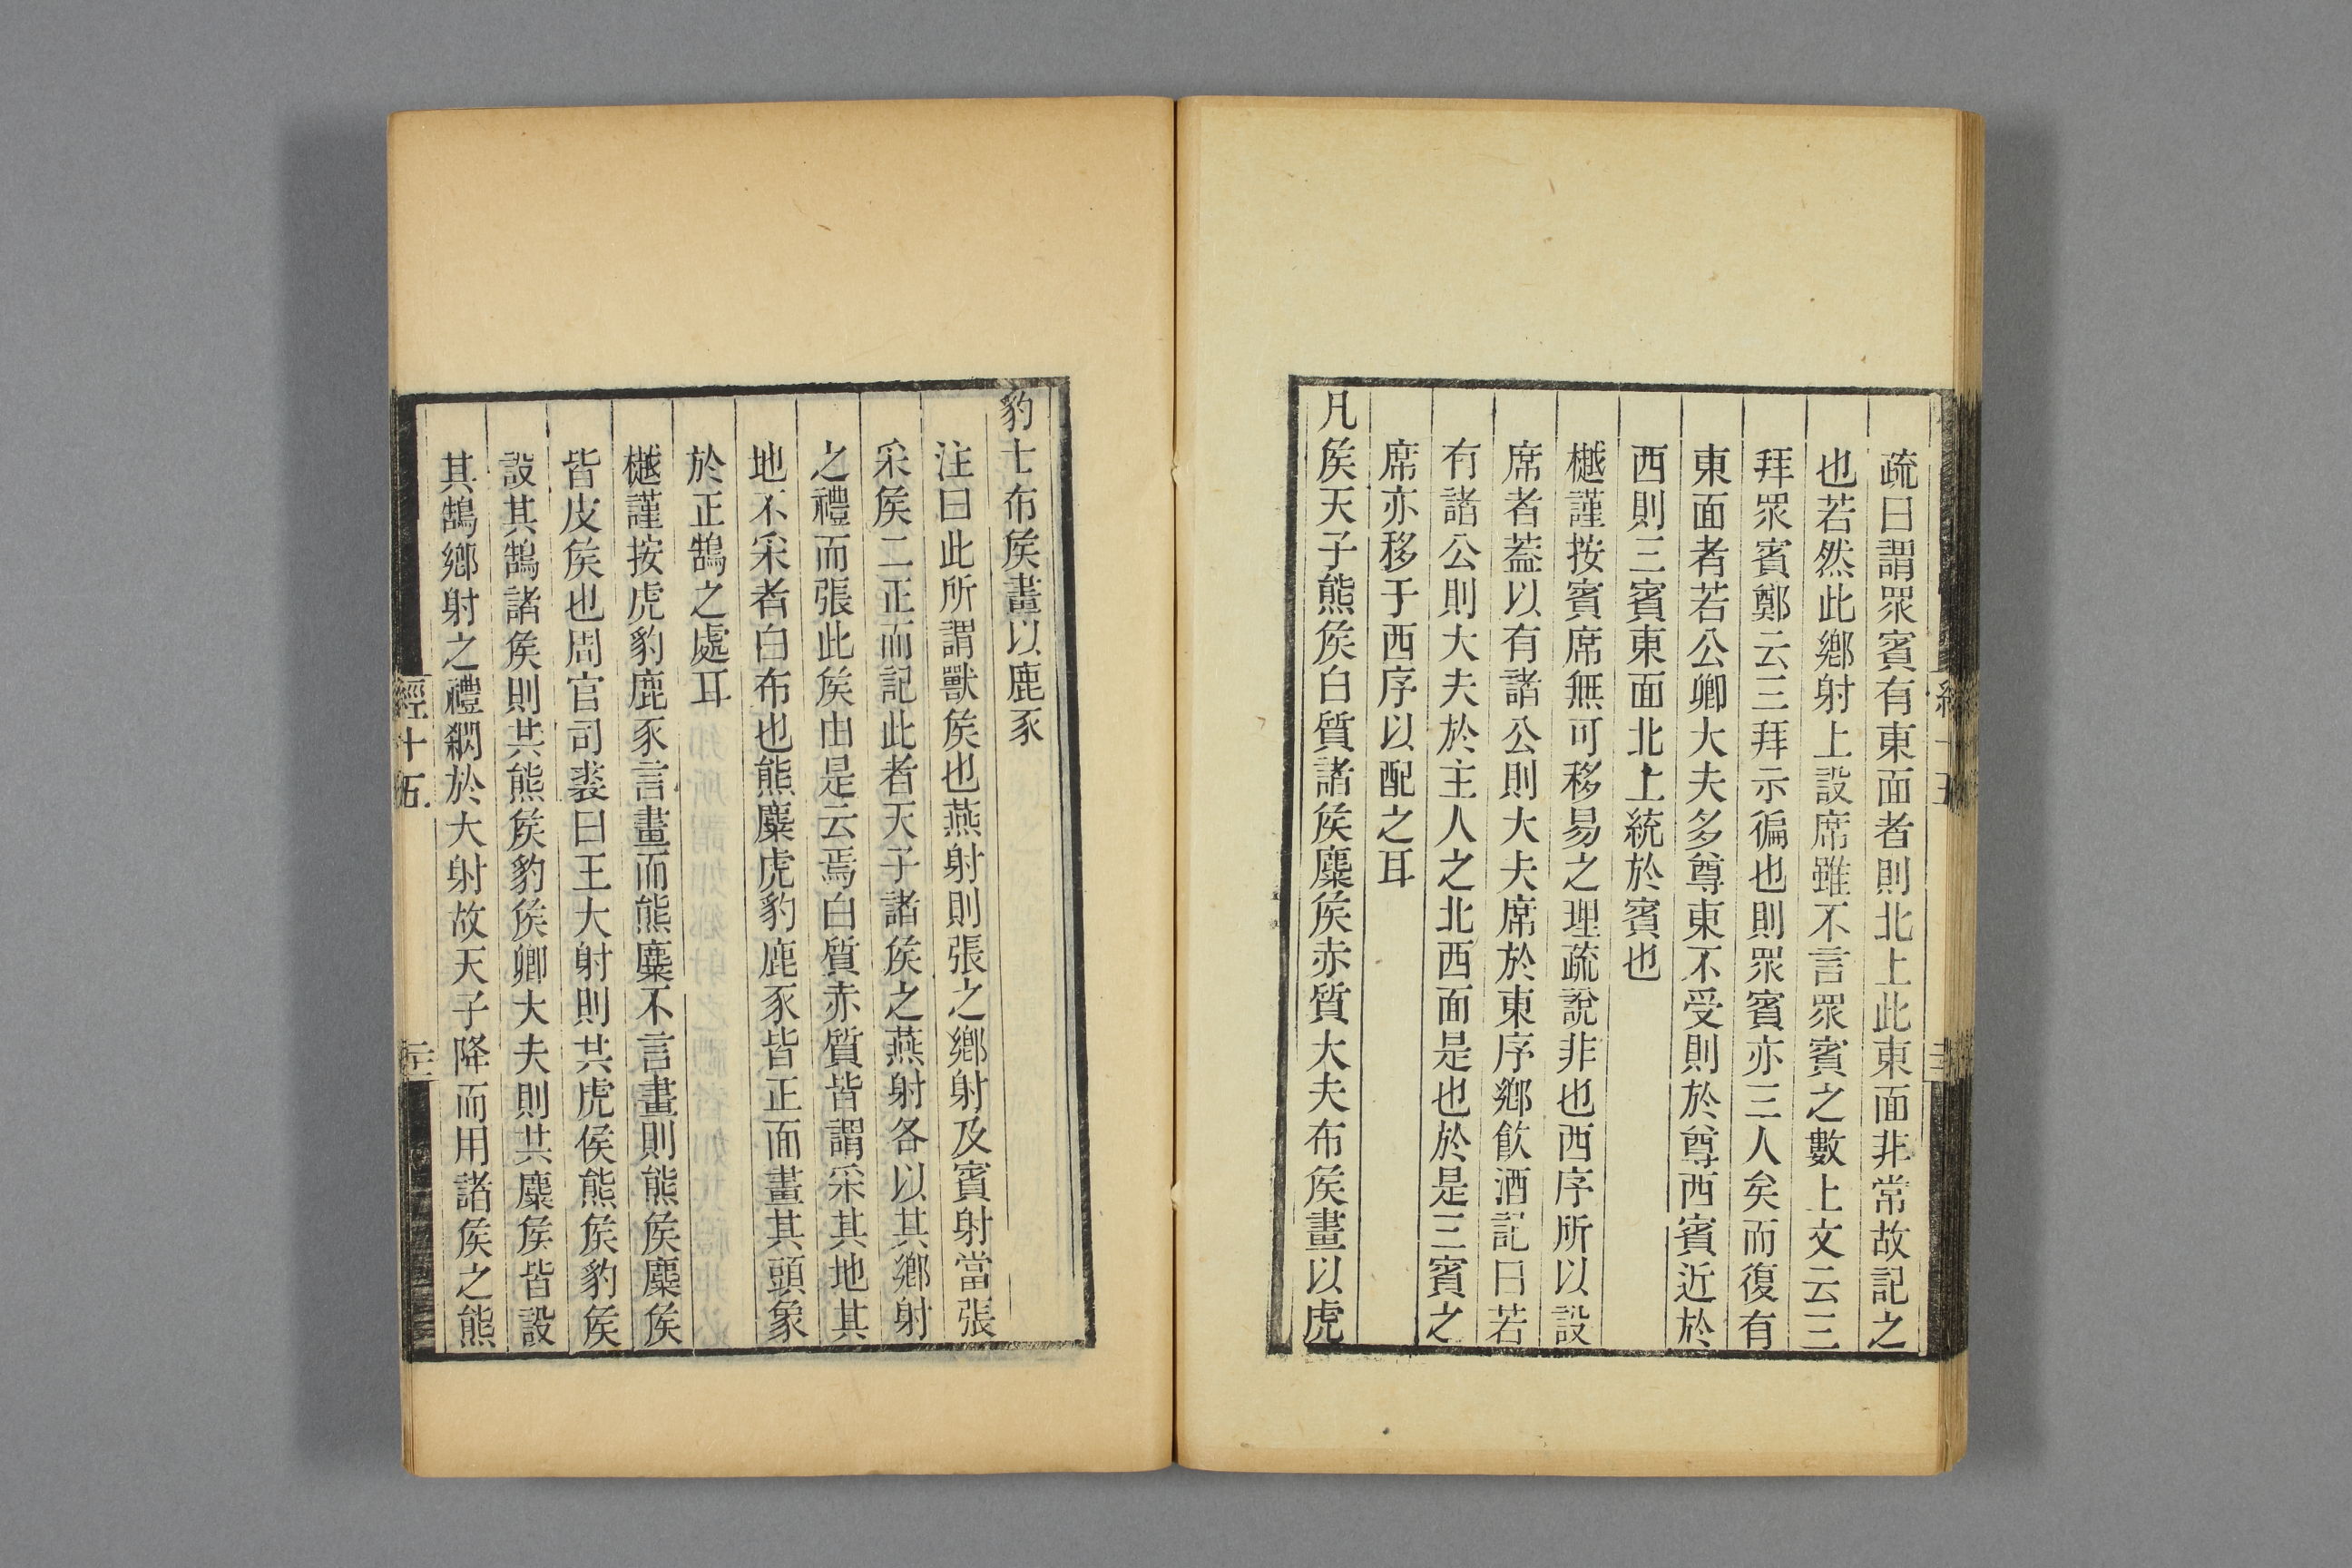 疏曰謂眾賓有東面者則北上此東面非常故記之
也若然此鄉射上設席雖不言眾賓之數上文云三
拜眾賓鄭云三拜示徧也則眾賓亦三人矣而復有
東面者若公卿大夫多尊東不受則於尊西賓近於
西則三賓東面北上統於賓也
樾謹按賓席無可移易之理疏說非也西序所以設
席者葢以有諸公則大夫席於東序鄉飲酒記曰若
有諸公則大夫於主人之北西面是也於是三賓之
席亦移于西序以配之耳
凡矦天子熊矦白質諸矦麋矦赤質大夫布矦畫以虎
豹士布矦畫以鹿豕
注曰此所謂獸矦也燕射則張之鄉射及賓射當張
采矦二正而記此者天子諸矦之燕射各以其鄉射
之禮而張此矦由是云焉白質赤質皆謂采其地其
地不采者白布也熊麋虎豹鹿豕皆正面畫其頭象
於正鵠之處耳
樾謹按虎豹鹿豕言畫而熊麋不言畫則熊矦麋矦
皆皮矦也周官司裘曰王大射則共虎侯熊矦豹矦
設其鵠諸矦則共熊矦豹矦卿大夫則共麋矦皆設
其鵠鄉射之禮殺於大射故天子降而用諸矦之熊
經十五